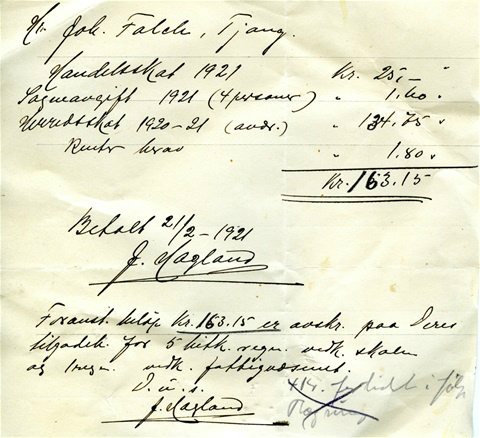 Hr. Joh. Falch, Tjang.
Handelsskat 1921 Kr. 25,- "
Sogneavgift 1921 (4 personer) " 1.60 "
Herredsskat 1920-21 (avdr.) " 134.75 "
Renter herav " 1.80 "
Kr. 163.15
Betalt 21/2-1921
J. Hagland
Foranst. beløp Kr. 163.15 er avskr. paa Deres
tilgodeh. for 5 bitk. regn. vedk. skolen
og 1 regn. vedk. fattigvæsenet.
D. u. s.
J. Hagland
414.